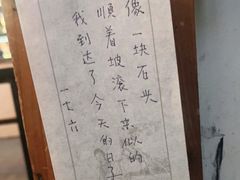 像一块石头
顺着坡滚下来似的
我到达了今天的日子
一七六